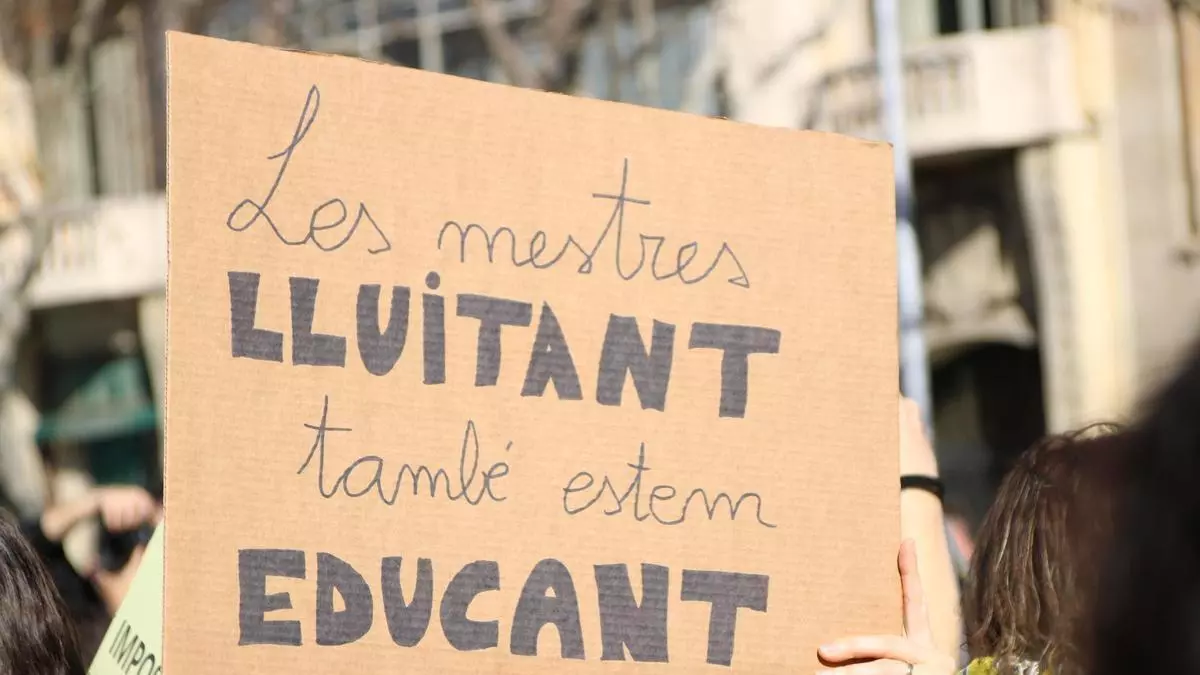 Les mestres
LLUiTANT
també estem
EDUCANT
IMPOS